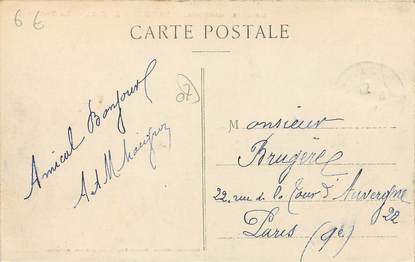 6 €
CARTE POSTALE
Amical Bonjour
A et M
07
Monsieur
Brugère
22, rue de la Tour d'Auvergne
22
Paris (9e)